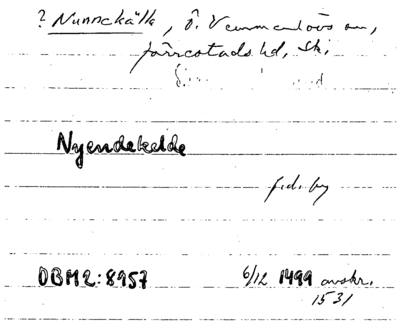 ? Nunnekälla, Ö. Vemmenlövs sn,
Järrestads hd, Sk.
Nyendekelde
f.d. by
DBM2:8957 6/12 1499 avskr.
1531